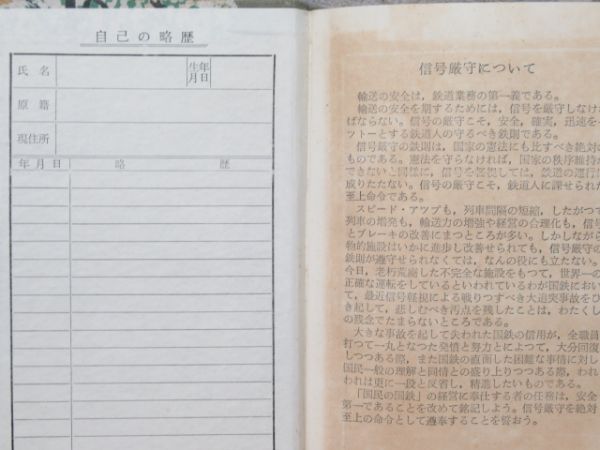 自己の略歴
氏名
生年月日
原籍
現住所
年月日 略歴
信号厳守について
輸送の安全は，鉄道業務の第一義である。
輸送の安全を期するためには，信号を厳守しなけれ
ばならない。信号の厳守こそ，安全，確実，迅速を
ットーとする鉄道人の守るべき鉄則である。
信号厳守の鉄則は，国家の憲法にも比すべき絶対の
ものである。憲法を守らなければ，国家の秩序維持が
できないと同様に，信号を軽視しては，鉄道の運行は
成りたたない。信号の厳守こそ，鉄道人に課せられた
至上命令である。
スピード・アツプも，列車間隔の短縮，したがつて
列車の増発も，輸送力の増強や経営の合理化も，信号
とブレーキの改善にまつところが多い。しかしながら
物的施設はいかに進歩し改善せられても，信号厳守の
鉄則が遵守せられなくては，なんの役にも立たない。
今日，老朽荒廃した不完全な施設をもつて，世界一の
正確な運転をしているといわれているわが国鉄におい
て，最近信号軽視による戦りつすべき大追突事故をひ
き起して，悲しむべき汚点を残したことは，わたくし
の残念でたまらないところである。
大きな事故を起して失われた国鉄の信用が，全職員
打つて一丸となつた発憤と努力とによつて，大分回復
しつつある際，また国鉄の直面した困難な事情に対し
国民一般の理解と同情との盛り上りつつある際，われ
われは更に一段と反省し，精進したいものである。
「国民の国鉄」の経営に奉仕する者の任務は，安全
第一であることを改めて銘記しよう。信号厳守を絶対
至上の命令として遵奉することを誓おう。